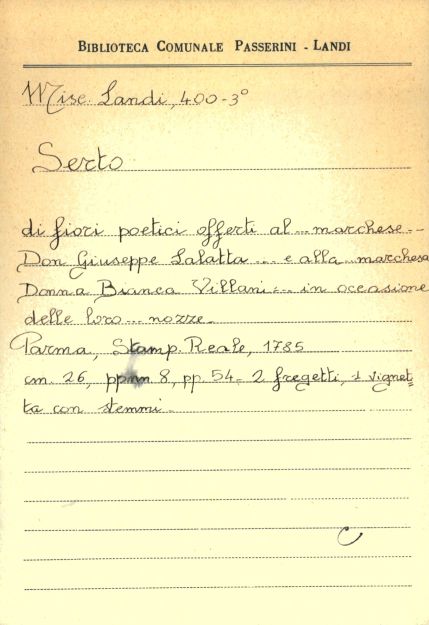 BIBLIOTECA COMUNALE PASSERINI - LANDI
Misc. Landi, 400-3°
Serto
di fiori poetici offerti al ... marchese --
Don Giuseppe Lalatta ... e alla marchesa
Donna Bianca Villani ... in occasione
delle loro ... nozze.
Parma, Stamp. Reale, 1785
cm. 26, ppnn 8, pp. 54 - 2 fregetti, 1 vignet=
ta con stemmi.
C